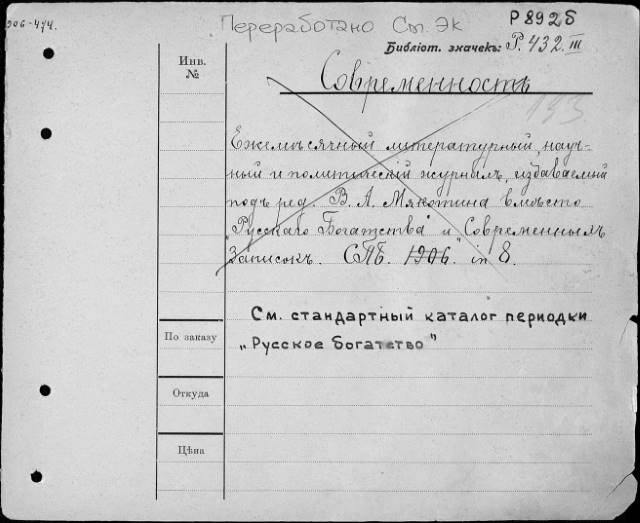 906-474.
Переработано См. ЭК
Р 8925
Библіот. значекъ: Р. 432. III
Инв. №
Современность
193
Ежемѣсячный литературный, науч-
ный и политическій журналъ, издаваемый
подъ ред. В. А. Мякотина вмѣсто
„Русскаго Богатства" и „Современныхъ
Записокъ. СПБ. 1906. in 8.
См. стандартный каталог периодки
По заказу
„Русское богатство"
Откуда
Цѣна